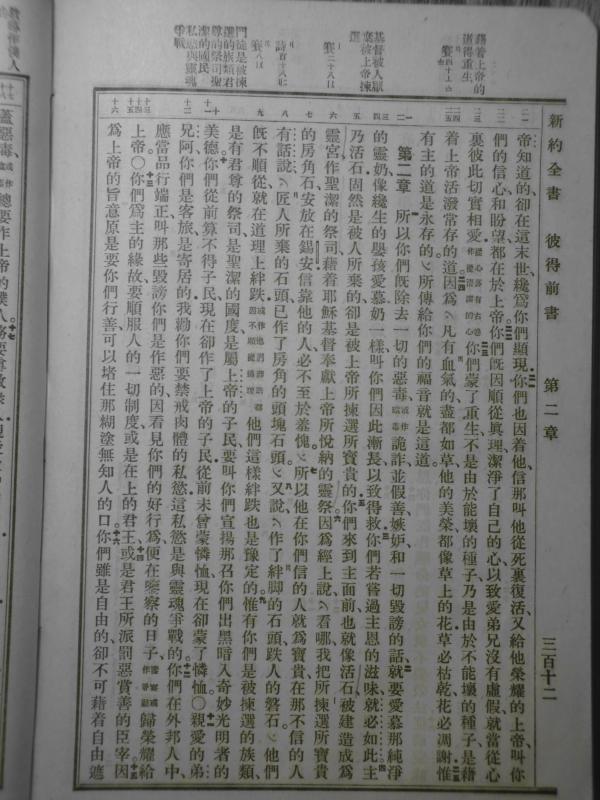 新約全書　彼得前書　第二章　三百十二
帝知道的卻在這末世纔爲你們顯現你們也因着他信那叫他從死裏復活又給他榮耀的上帝叫你
們的信心和盼望都在於上帝你們旣因順從眞理潔淨了自己的心以致愛弟兄沒有虛假就當從心
裏彼此切實相愛從心訴有古卷作從清潔的心你們蒙了重生不是由於能壞的種子乃是由於不能壞的種子是藉
着上帝活潑常存的道因爲凡有血氣的盡都如草他的美榮都像草上的花草必枯乾花必凋謝惟
有主的道是永存的所傳給你們的福音就是這道
第二章　所以你們旣除去一切的惡毒或作陰毒詭詐並假善嫉妒和一切毀謗的話就要愛慕那純淨
的靈奶像纔生的嬰孩愛慕奶一樣叫你們因此漸長以致得救你們若嘗過主恩的滋味就必如此主
乃活石固然是被人所棄的卻是被上帝所揀選所寶貴的你們來到主面前也就像活石被建造成爲
靈宮作聖潔的祭司藉着耶穌基督奉獻上帝所悅納的靈祭因爲經上說看哪我把所揀選所寶貴
的房角石安放在錫安信靠他的人必不至於羞愧所以他在你們信的人就爲寶貴在那不信的人
有話說匠人所棄的石頭已作了房角的頭塊石頭又說作了絆腳的石頭跌人的磐石他們
旣不順從就在道理上絆跌或作他們因不順從道理都絆跌他們這樣絆跌也是豫定的惟有你們是被揀選的族類
是有君尊的祭司是聖潔的國度是屬上帝的子民要叫你們宣揚那召你們出黑暗入奇妙光明者的
美德你們從前算不得子民現在卻作了上帝的子民從前未曾蒙憐恤現在卻蒙了憐恤○親愛的弟
兄阿你們是客旅是寄居的我勸你們要禁戒肉體的私慾這私慾是與靈魂爭戰的你們在外邦人中
應當品行端正叫那些毀謗你們是作惡的因看見你們的好行爲便在鑒察的日子鑒察或作眷顧歸榮耀給
上帝○你們爲主的緣故要順服人的一切制度或是在上的君王或是君王所派罰惡賞善的臣宰因
爲上帝的旨意原是要你們行善可以堵住那糊塗無知人的口你們雖是自由的卻不可藉着自由遮
蓋惡毒或作陰毒總要作上帝的僕人
藉着上帝的道得重生
賽四十六
基督被人厭棄被上帝揀選
賽二十八
詩百十八
賽八
門徒是被揀選的族類君尊的祭司聖潔的國民
私慾與靈魂爭戰